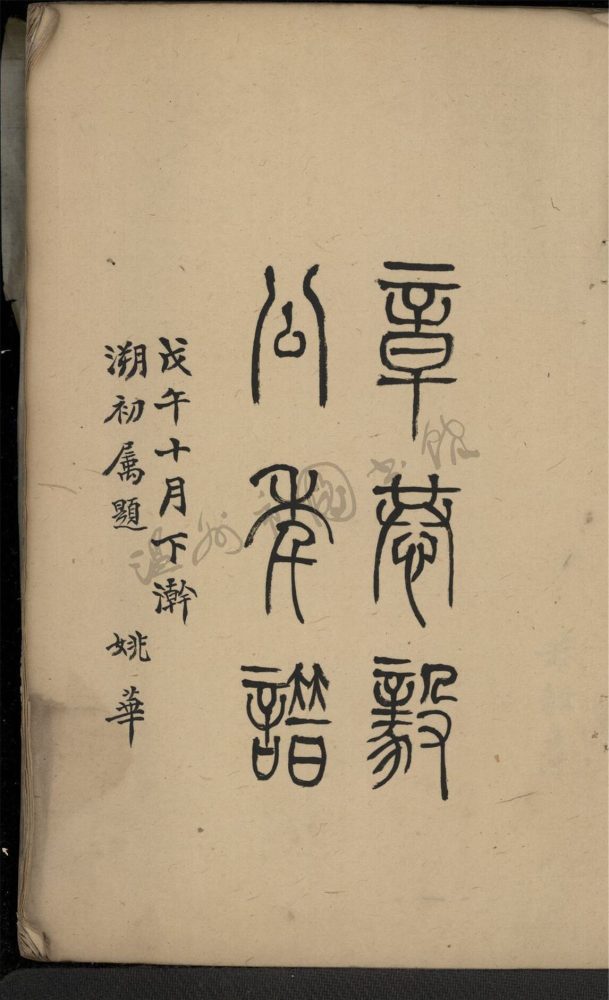 章恭毅
公年譜
戊午十月下澣
溯初属題 姚華